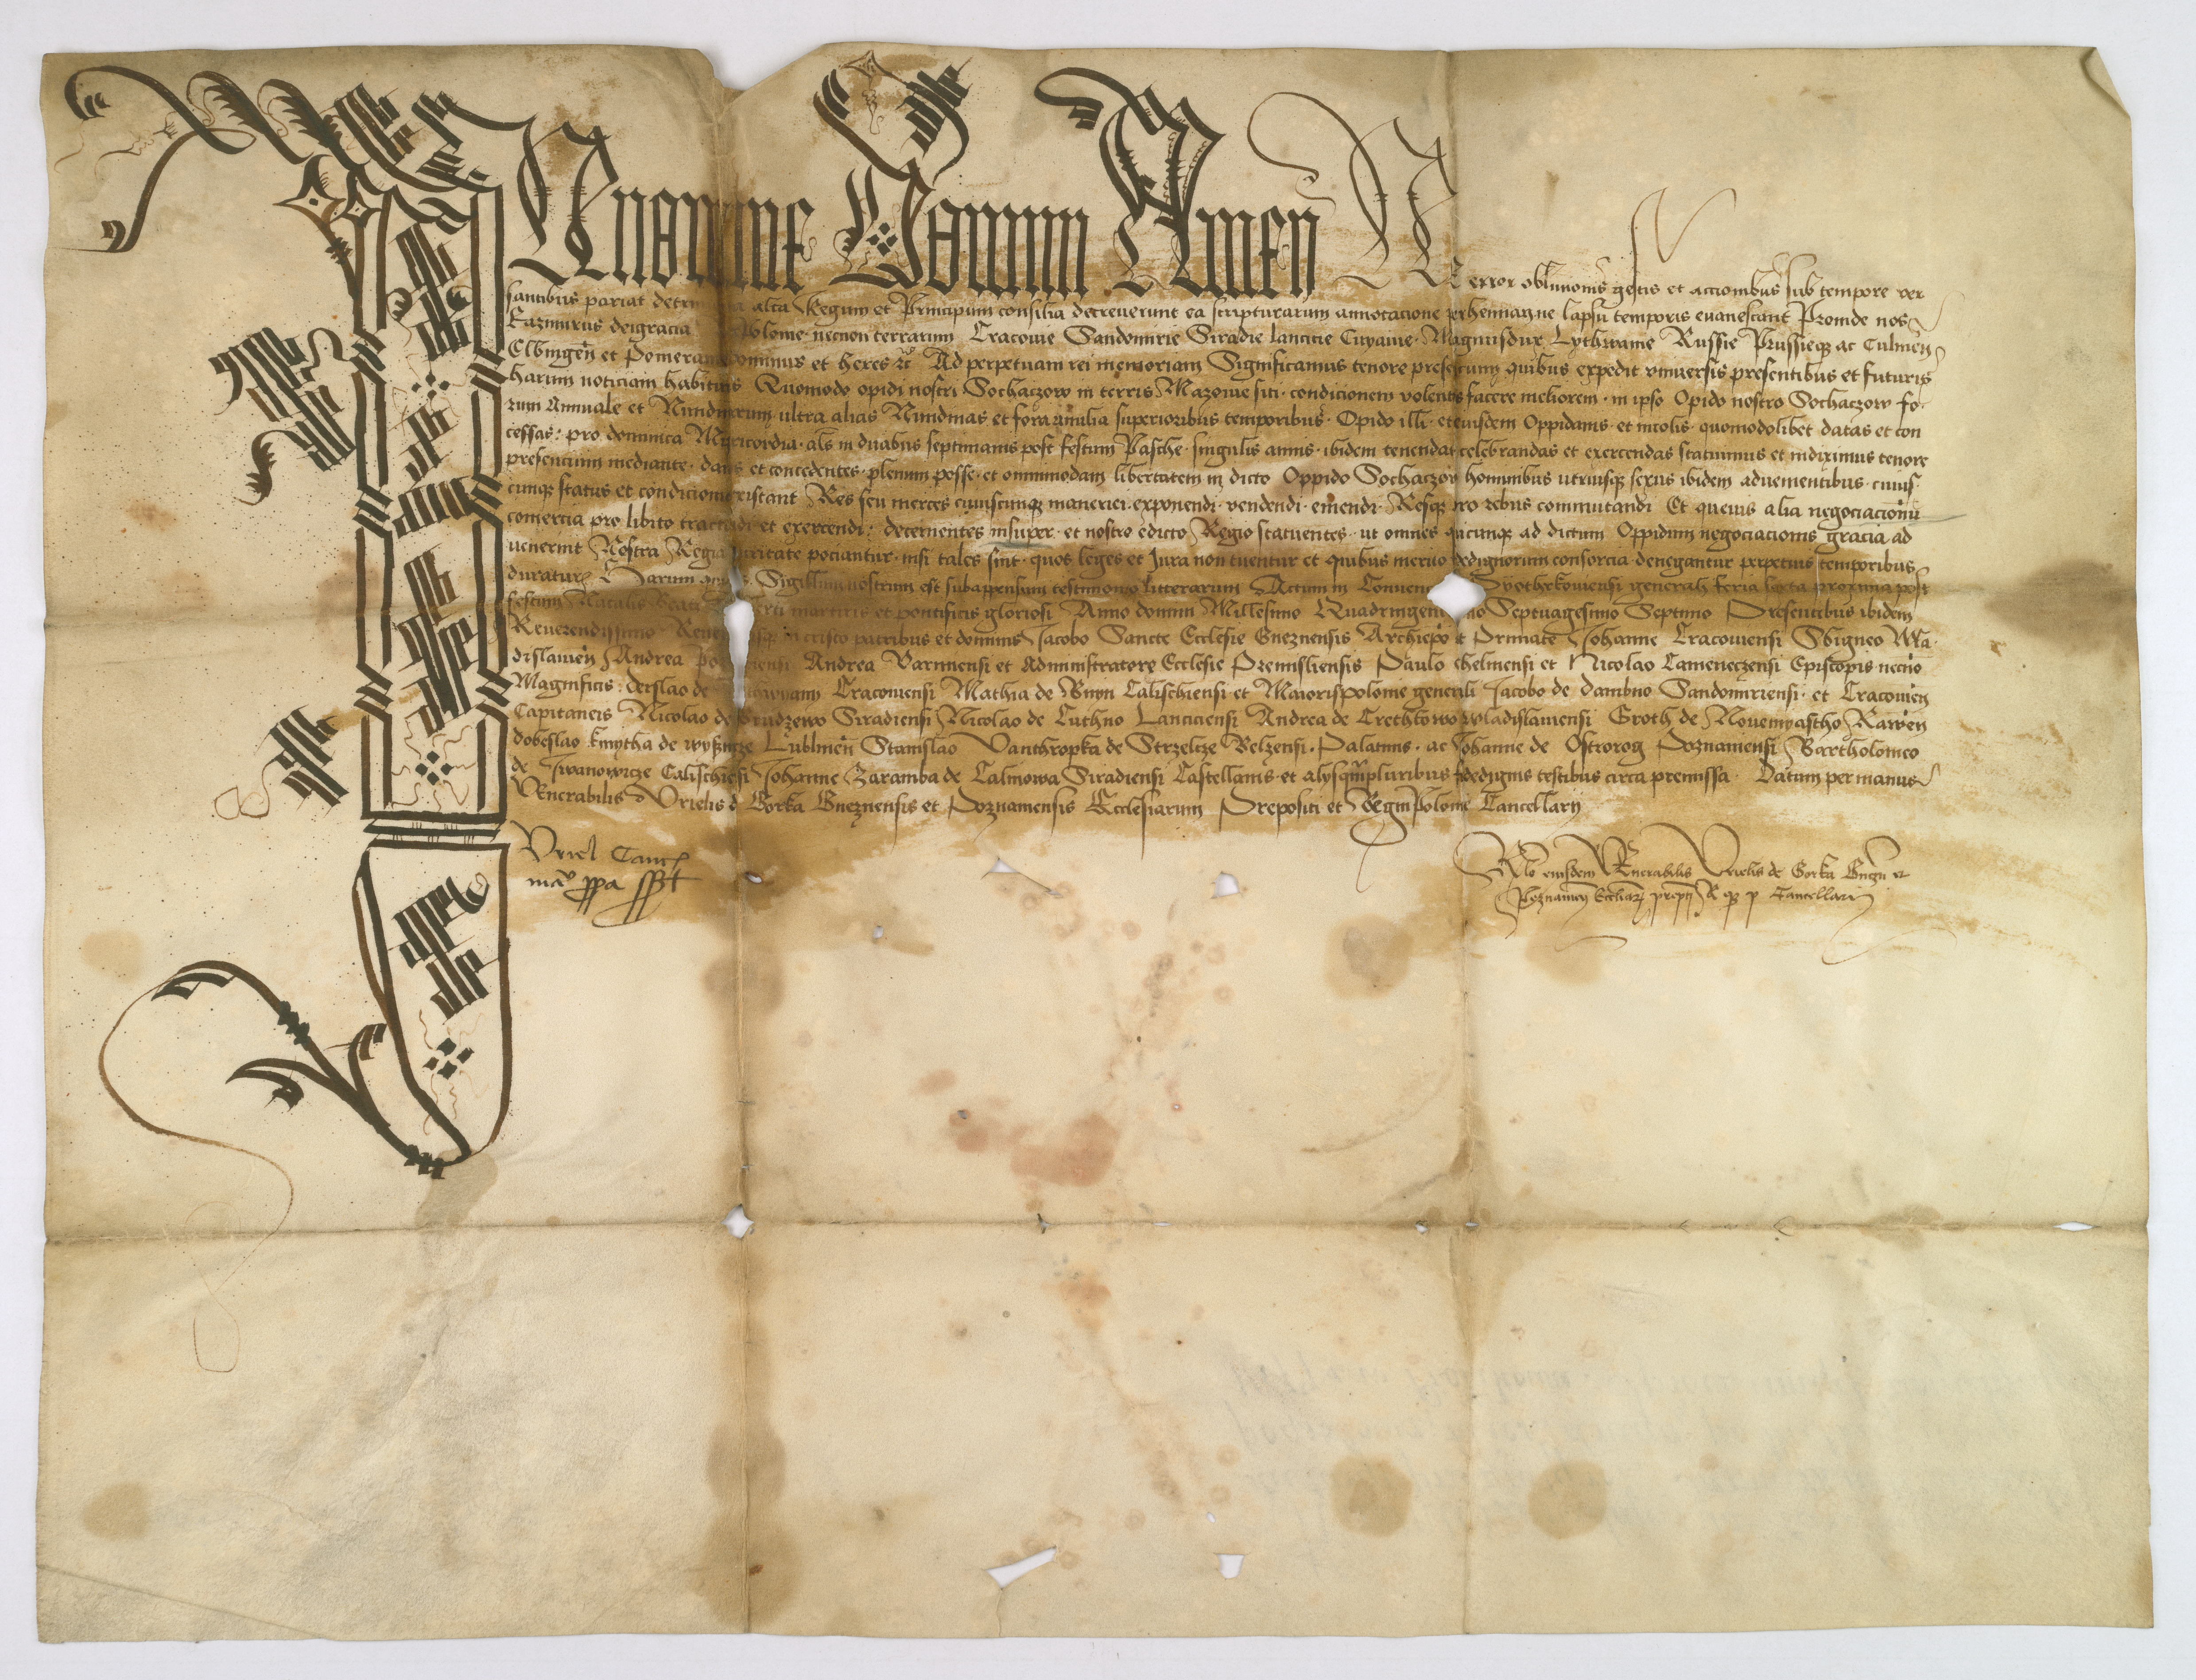 In nomine Domini Amen Ne error oblivionis gestis et accionibus sub tempore ver
santibus pariat detrimenta alta Regum et Principum consilia decreverunt ea scripturarum annotacione perhennari ne lapsu temporis evanescant Proinde nos
Kazimirus dei gracia Polonie necnon terrarum Cracovie Sandomirie Siradie Lancicie Cuyavie Magnus dux Lythwanie Russie Prussieque ac Culmen
Elbingen et Pomeranie dominus et heres etc Ad perpetuam rei memoriam Significamus tenore presencium quibus expedit universis presentibus et futuris
harum noticiam habituris Quomodo opidi nostri Sochaczow in terris Mazovie siti condicionem volentes facere meliorem in ipso Opido nostro Sochaczow fo
rum Annuale et Nundinarum ultra alias Nundinas et fora annalia superioribus temporibus Opido illi et eiusdem Oppidanis et incolis quomodolibet datas et con
cessas pro dominica Misericordia als in duabus septimanis post festum Pasche singulis annis ibidem tenendas celebrandas et exercendas statuimus et indiximus tenore
presencium mediante dantes et concedentes plenum posse et omnimodam libertatem in dicto Oppido Sochaczow hominibus utriusque sexus ibidem advenientibus cuius
cunque status et condicionis existant Res seu merces cuiuscunque maneriei exponendi vendendi emendi Resque pro rebus commutandi Et quevis alia negociacionum
comercia pro libito tractandi et exercendi decernentes insuper et nostro edicto Regio statuentes ut omnes quicunque ad dictum Oppidum negociacionis gracia ad
venerint Nostra Regia securitate pociantur nisi tales sint quos leges et Jura non tuentur et quibus merito fidedignorum consorcia denegantur perpetuis temporibus
duraturis Harum quibus Sigillum nostrum est subappensum testimonio litterarum Actum in Convencione Pyothrkoviensi generali feria sexta proxima post
festum Natalis Beati Adalberti martiris et pontificis gloriosi Anno domini Millesimo Quadringentesimo Septuagesimo Septimo Presentibus ibidem
Reverendissimo Reverendisque in cristo patribus et dominis Jacobo Sancte Ecclesie Gneznensis Archiepo et Primate Johanne Cracoviensi Sbigneo Wla
dislavien Andrea Poznaniensi Andrea Varmiensi et Administratore Ecclesie Premisliensis Paulo Chelmensi et Nicolao Cameneczensi Episcopis necno
Magnificis derslao de Rithwyany Cracoviensi Mathia de Bnyn Calischiensi et Maioris polonie generali Jacobo de dambno Sandomiriensi et Cracovien
Capitaneis Nicolao de Brudzewo Siradiensi Nicolao de Cuthno Lanciciensi Andrea de Crethkowo wladislaviensi Groth de Novemyastho Rawen
dobeslao kmytha de wysnicze Lublinen Stanislao Vanthropka de Strzelcze Belzensi Palatinis ac Johanne de Ostrorog Poznaniensi Bartholomeo
de Jwanowicze Calischiesi Johanne Zaramba de Calinowa Siradiensi Castellanis et alysquampluribus fidedignis testibus circa premissa Datum per manus
Venerabilis Urielis de Gorka Gneznensis et Poznaniensis Ecclesiarum Prepositi et Regni Polonie Cancellary
Uriel Canc
manu ppa sst
Rlo eiusdem Venerabilis Urielis de Gorka Gnezn et
Poznanien Eccliar prepti R p Cancellari